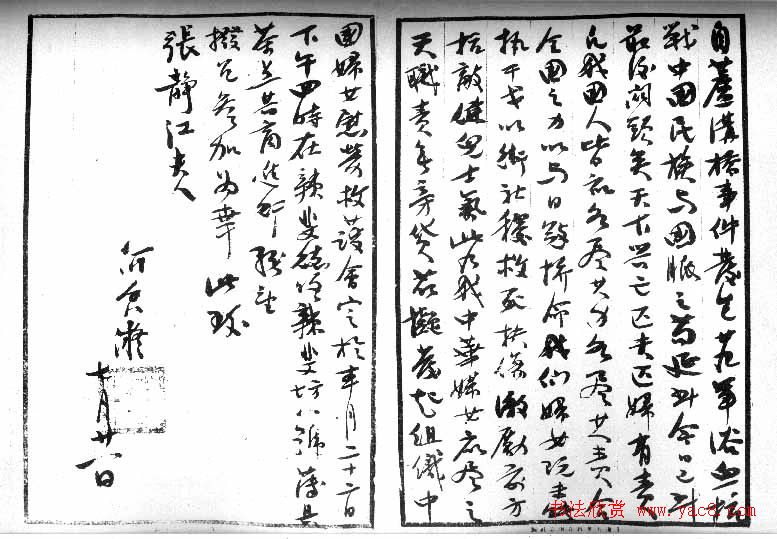 自蘆溝橋事件發生軍浴血抗
戰中國民族與國脈之苟延今日已到
最後關頭矣天下興亡匹夫匹婦有責
凡我國人皆應各盡其力各盡其責合
全國之力以與日寇拚命我們婦女既未
執干戈以衛社稷救死扶傷激勵前方
抗敵健兒士氣此乃我中華婦女應盡之
天職責無旁貸茲擬發起組織中
國婦女慰勞救護會定於本月二十二日
下午四時在辣斐德路辣斐坊八號薄具
茶點共商進行務望
撥冗參加為幸此致
張靜江夫人
何香凝
七月廿一日
书法欣赏 www.yac8.com